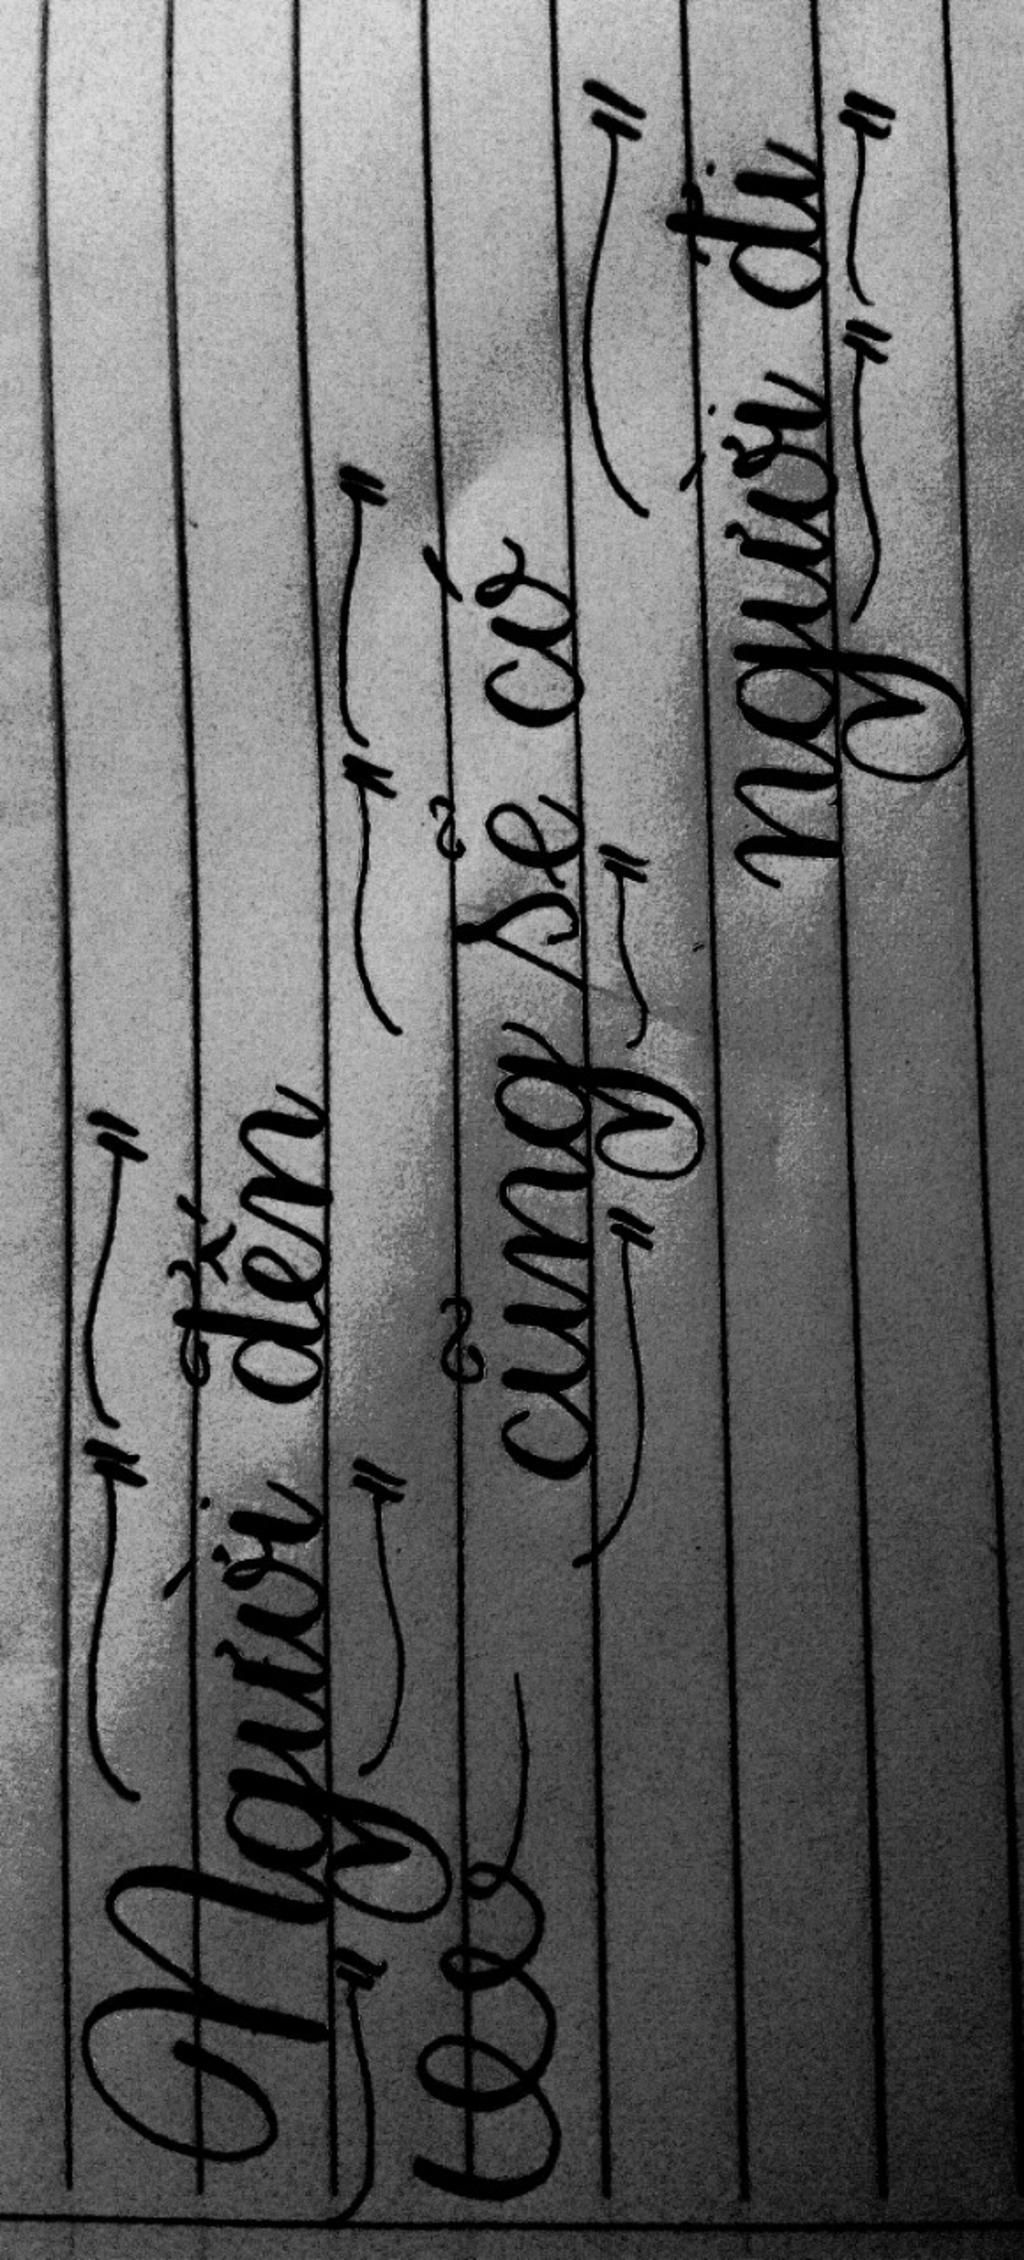 Người đến
cũng sẽ có
người đi